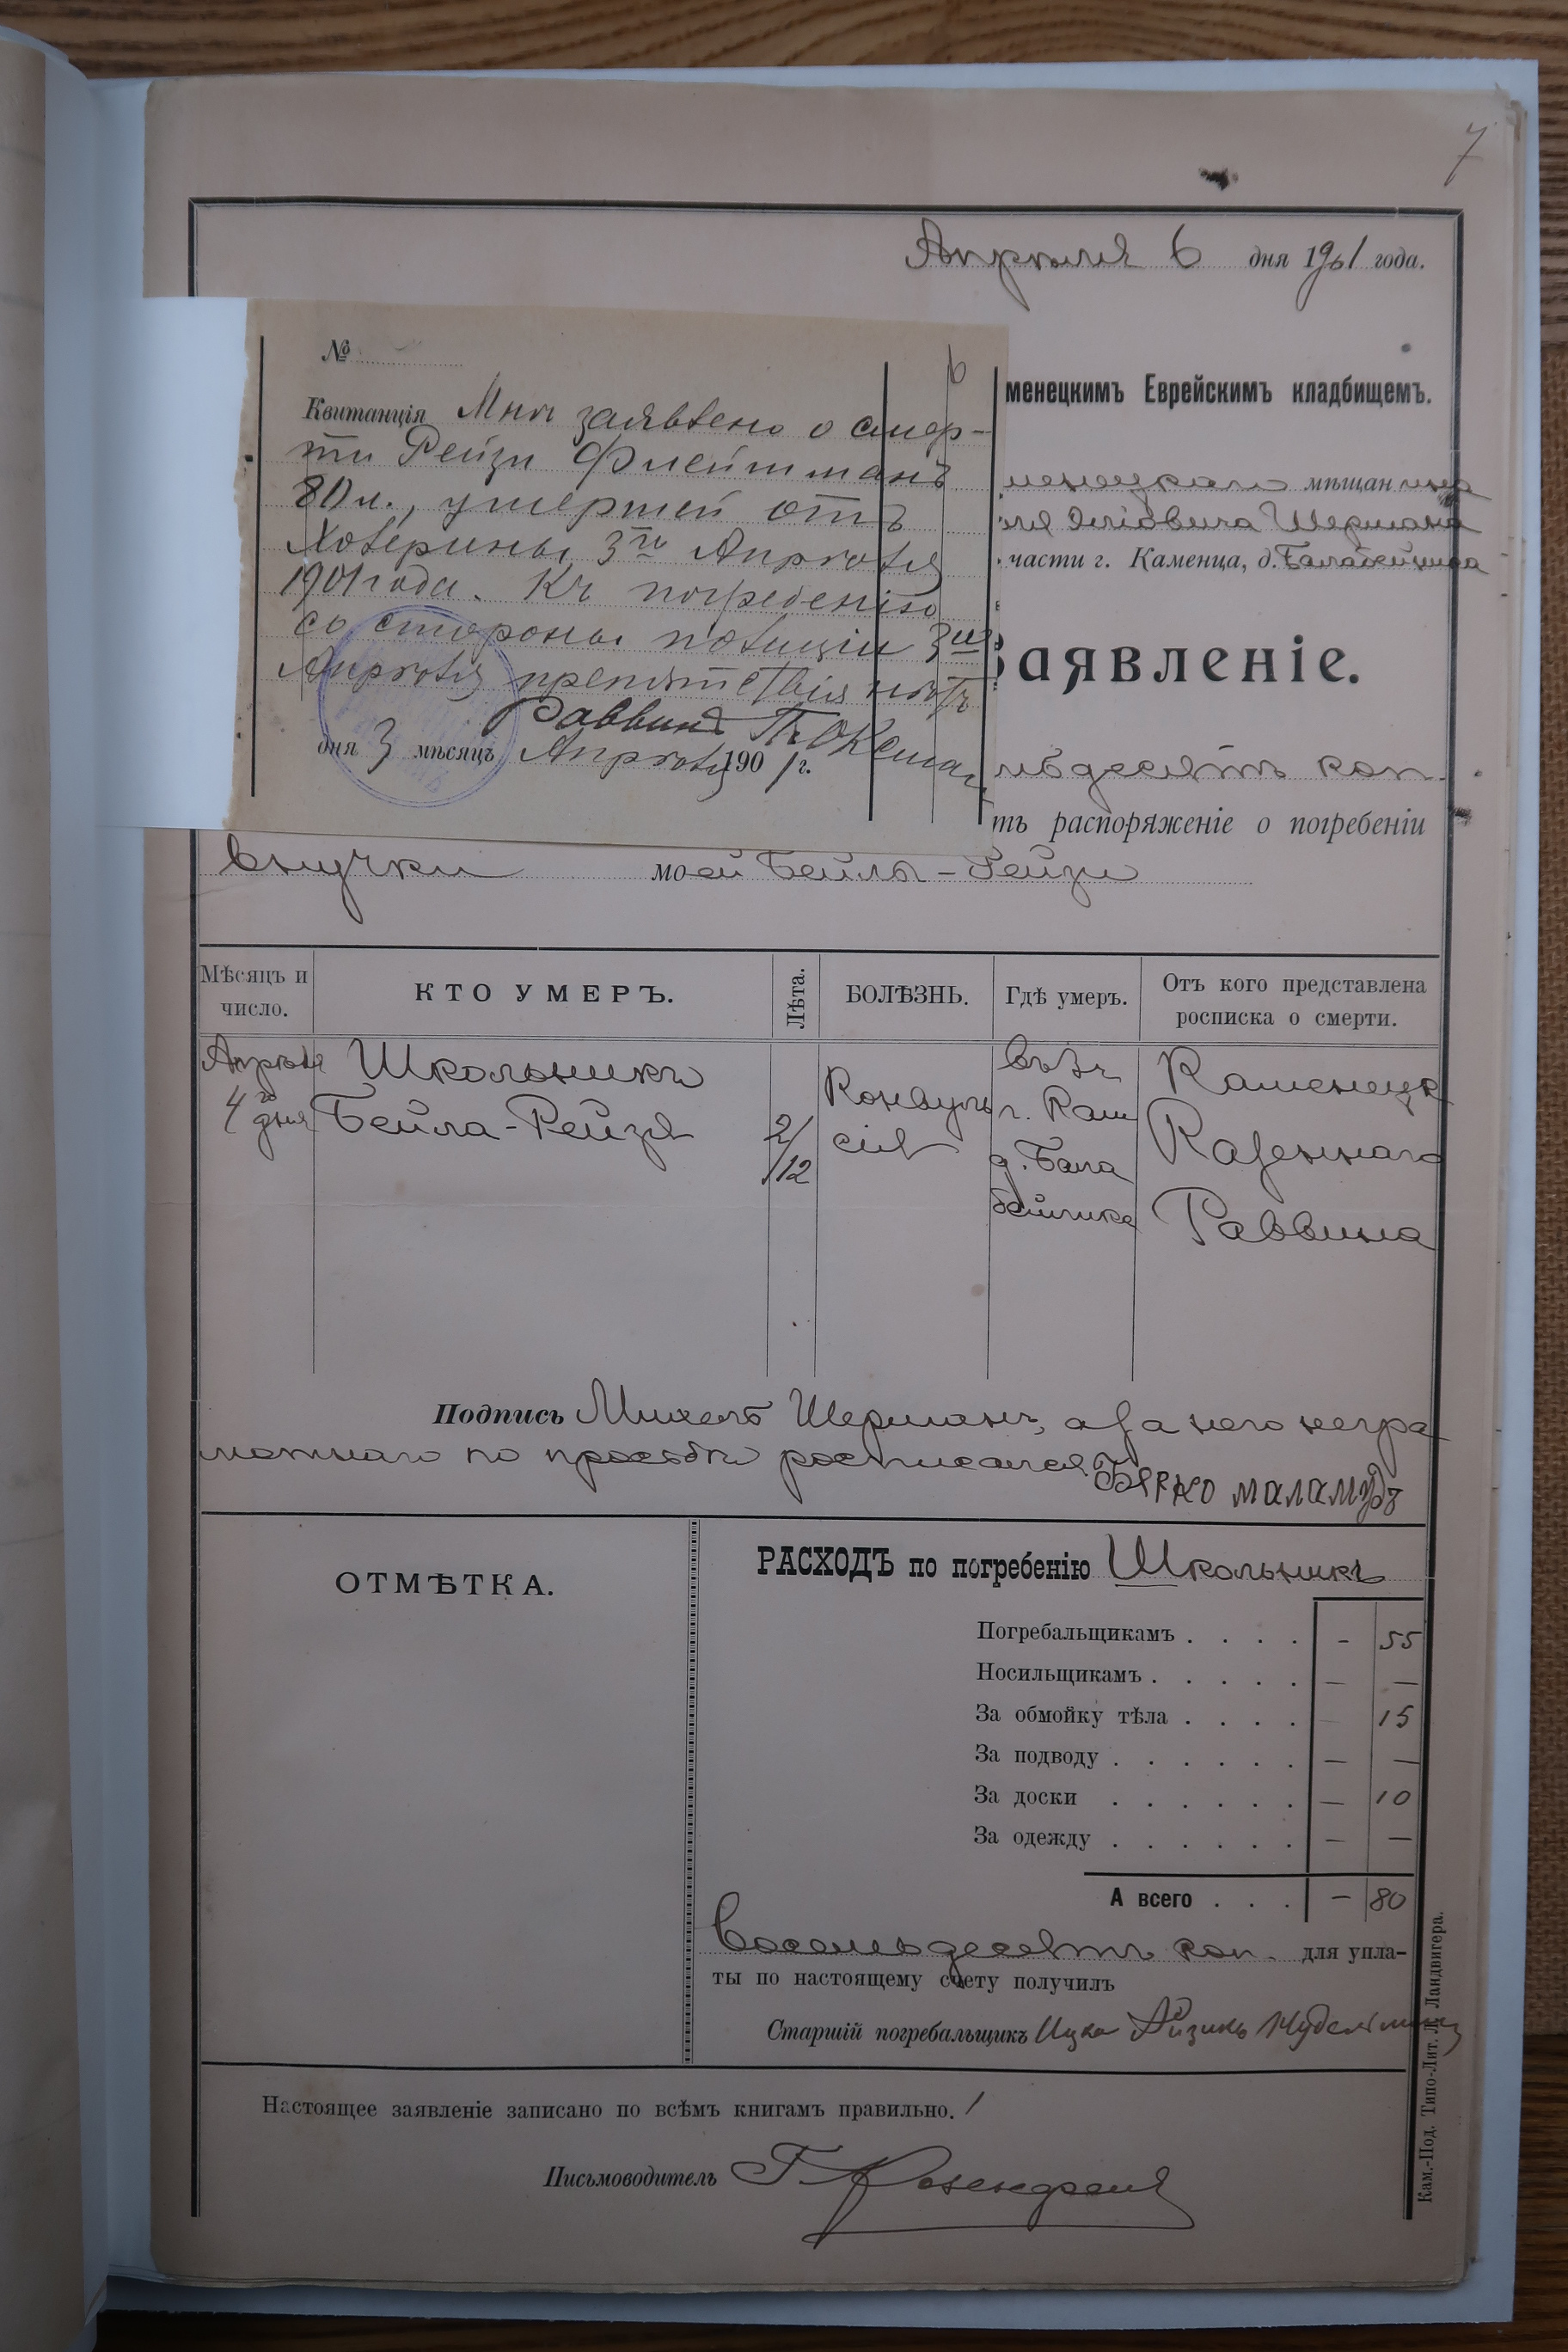 7
Апрѣля 6 дня 1901 года.
№
6
Квитанція Мнѣ заявлено о смер-
ти Рейзи Флейтманъ
80 л., умершей отъ
Холерины 3го Апрѣля
1901 года. Къ погребенію
со стороны полиціи 3го
Апрѣля препятствія нѣтъ
Раввинъ
дня 3 мѣсяцъ Апрѣля 1901 г.
менецкимъ Еврейскимъ кладбищемъ.
менецкаго мѣщанина
Шермана
части г. Каменца, д. Балабейчика
Заявленіе.
мьдесятъ коп.
ть распоряженіе о погребеніи
внучки моей Бейлы-Рейзи
Мѣсяцъ и число.
КТО УМЕРЪ.
Лѣта.
БОЛѢЗНЬ.
Гдѣ умеръ.
Отъ кого представлена росписка о смерти.
Апрѣля 4го дня
Школьникъ Бейла-Рейзя
2/12
Конвульсія
г. Кам д. Балабейчика
Каменецк Казеннаго Раввина
Подпись Михель Шерманъ, а за него негра
мотнаго по просьбѣ росписался Бярко маламудъ
ОТМѢТКА.
РАСХОДЪ по погребенію Школьникъ
Погребальщикамъ . . . . - 55
Носильщикамъ . . . . . — —
За обмойку тѣла . . . . 15
За подводу . . . . . . — —
За доски . . . . . . — 10
За одежду . . . . . . — —
А всего . . . — 80
Восемьдесятъ коп. для упла-
ты по настоящему счету получилъ
Старшій погребальщикъ Ицко Айзикъ Нудельманъ
Настоящее заявленіе записано по всѣмъ книгамъ правильно.
Письмоводитель
Кам.-Под. Типо-Лит. Л. Ландвигера.